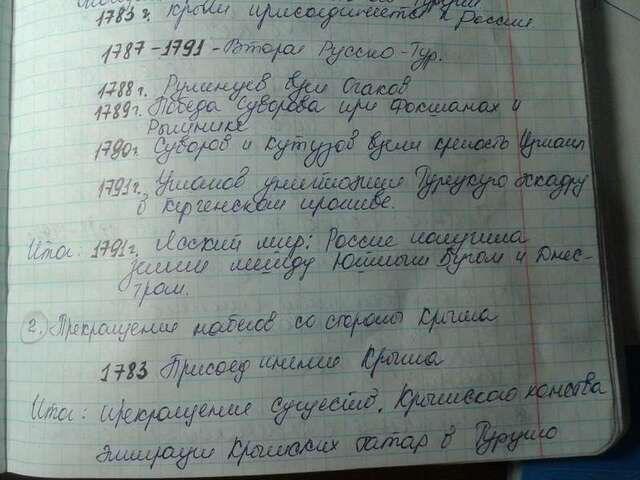 1783 г. Крым присоединяется к России
1787-1791 - Вторая Русско-Тур.
1788 г. Румянцев взял Очаков
1789 г. Победа Суворова при Фокшанах и
Рымнике
1790 г. Суворов и Кутузов взяли крепость Измаил
1791 г. Ушаков уничтожил Турецкую эскадру
в Керченском проливе.
Итог: 1791 г. Ясский мир: Россия получила
земли между Южным Бугом и Днес-
тром.
2. Прекращение набегов со стороны Крыма
1783 Присоединение Крыма
Итог: прекращение существ. Крымского ханства
эмиграция Крымских татар в Турцию